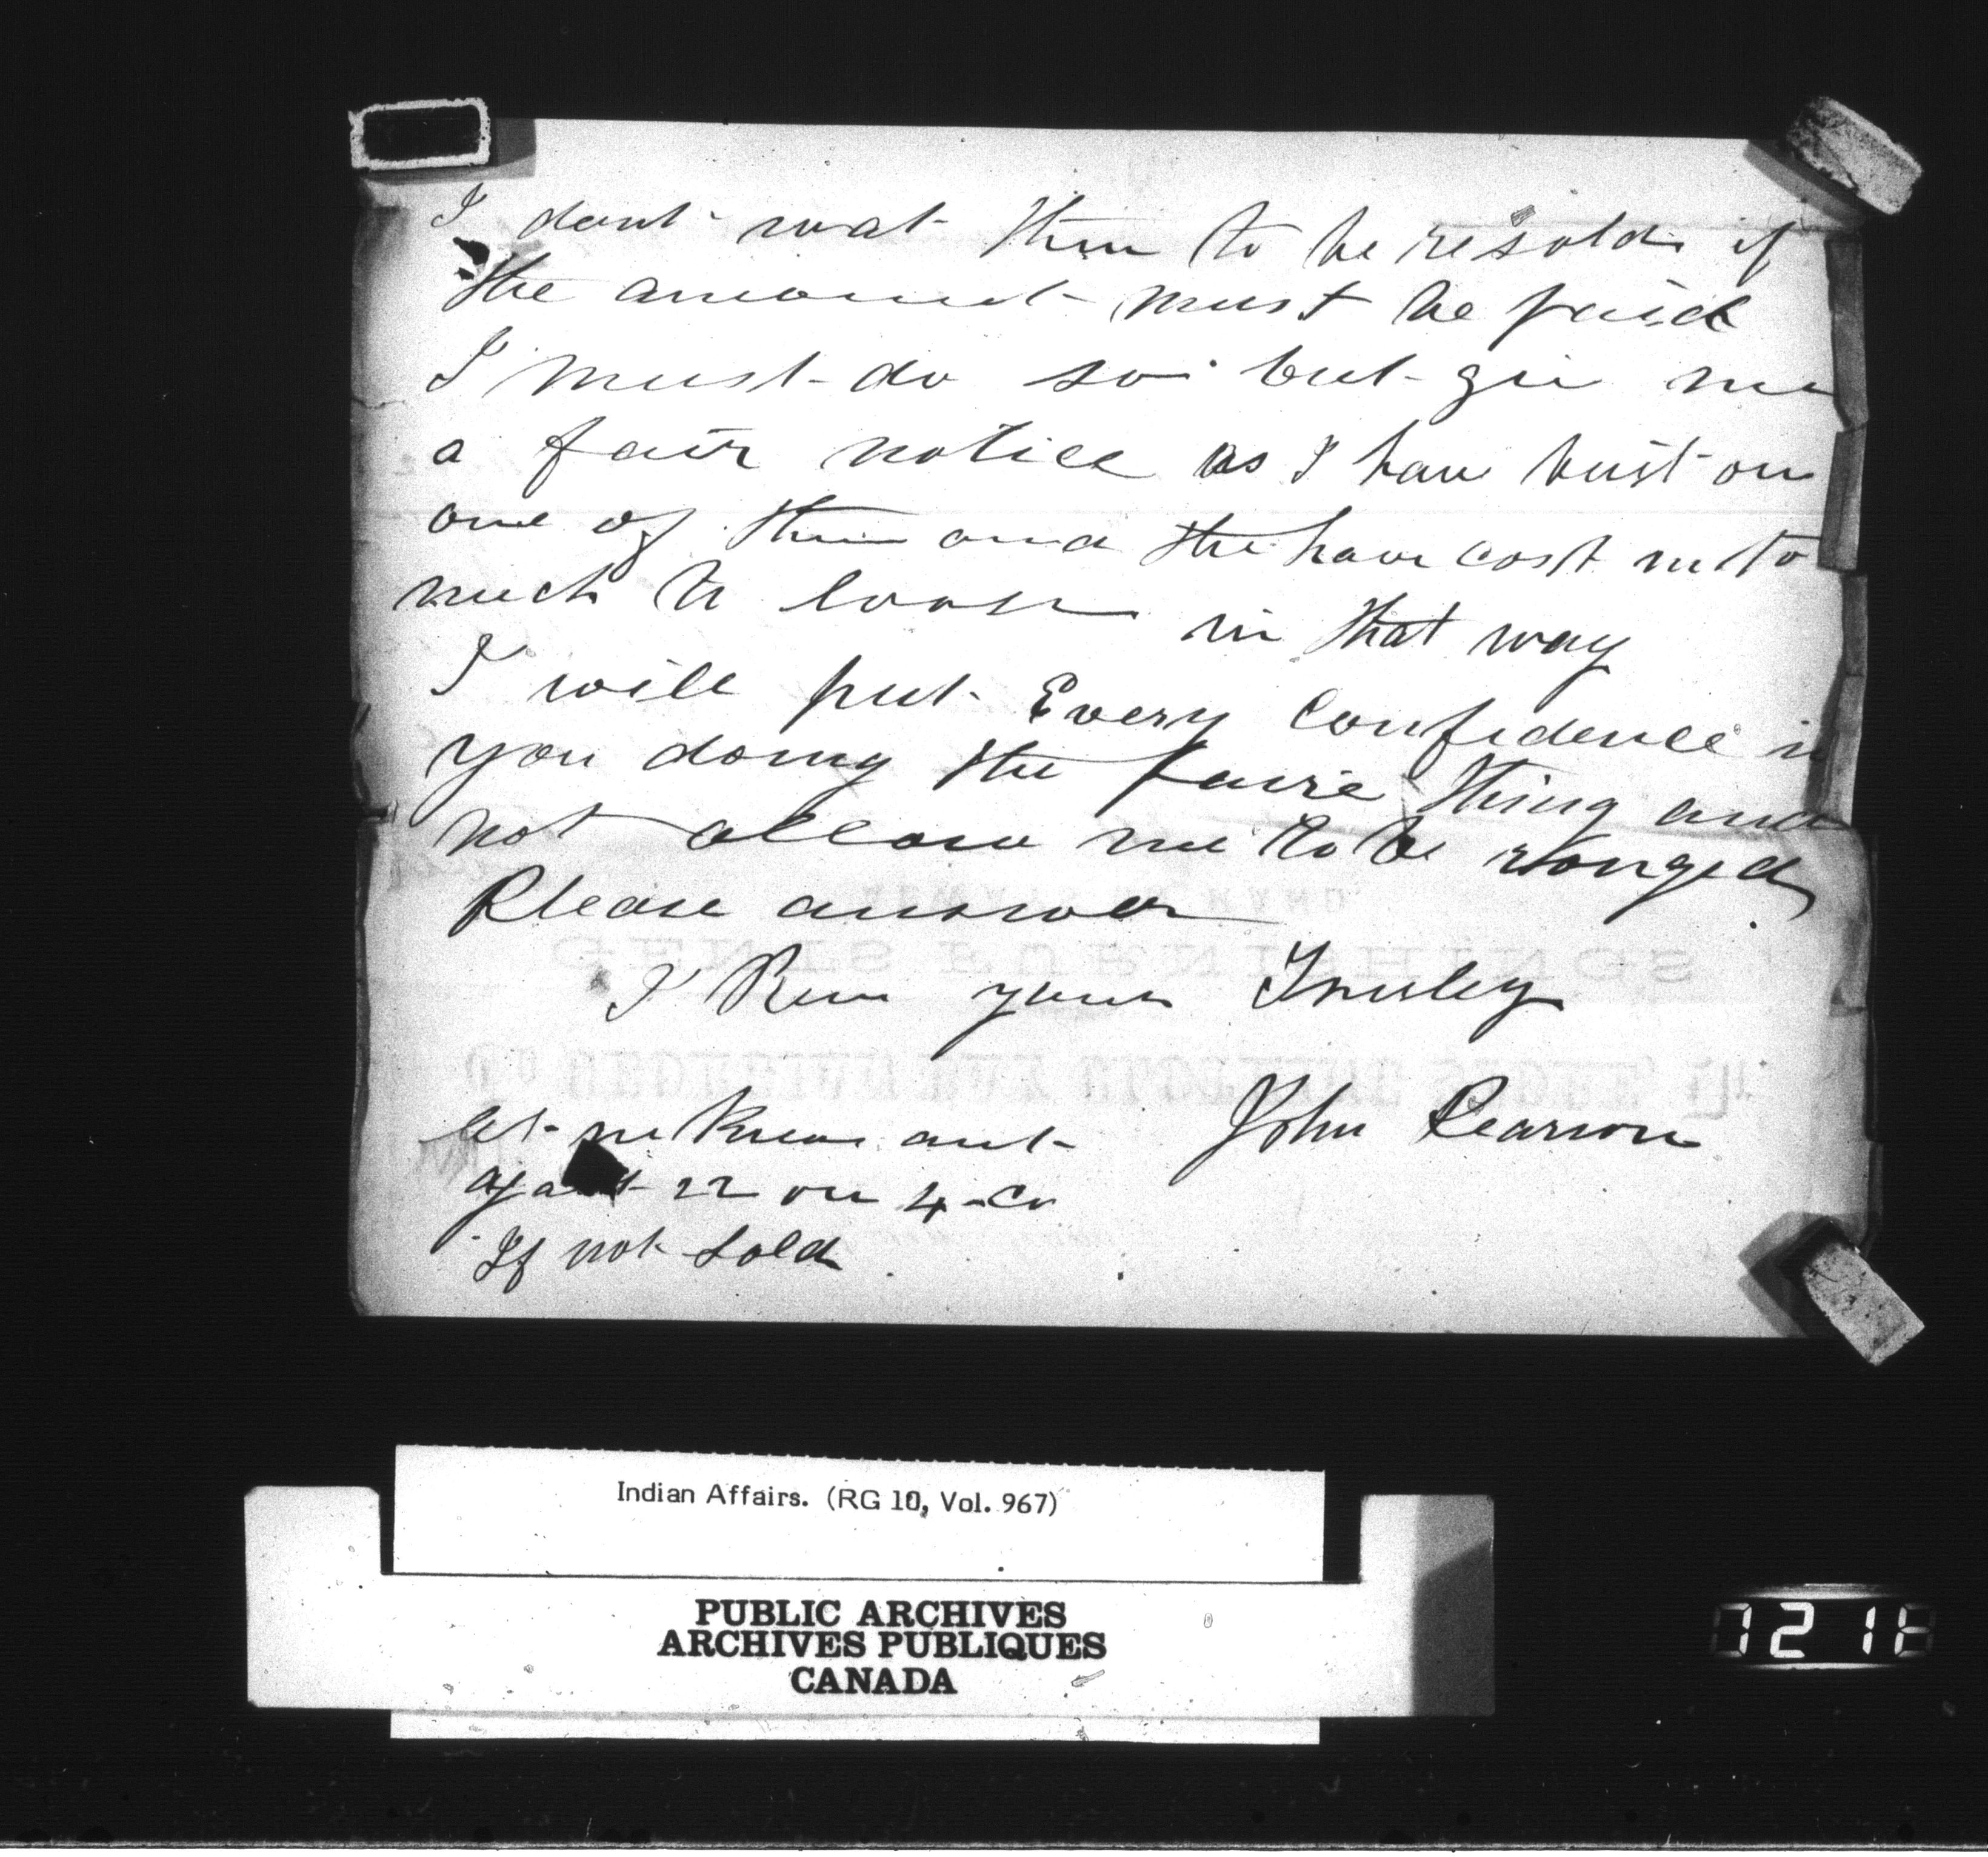 I dont wat them to be resold if
the amount must be paid
I must do so but giv me
a fair notice as I have buist on
one of them and the have cost me to
much to loose in that way
I will put Every Confidence in
you doing the faire thing and
not allow me to be ronged
Please answer
I Rem yours Truley
John Pearson
let me know aut
22 on 4 Co
If not sold
GENTS FURNISHINGS
Indian Affairs. (RG 10, Vol. 967)
PUBLIC ARCHIVES
ARCHIVES PUBLIQUES
CANADA